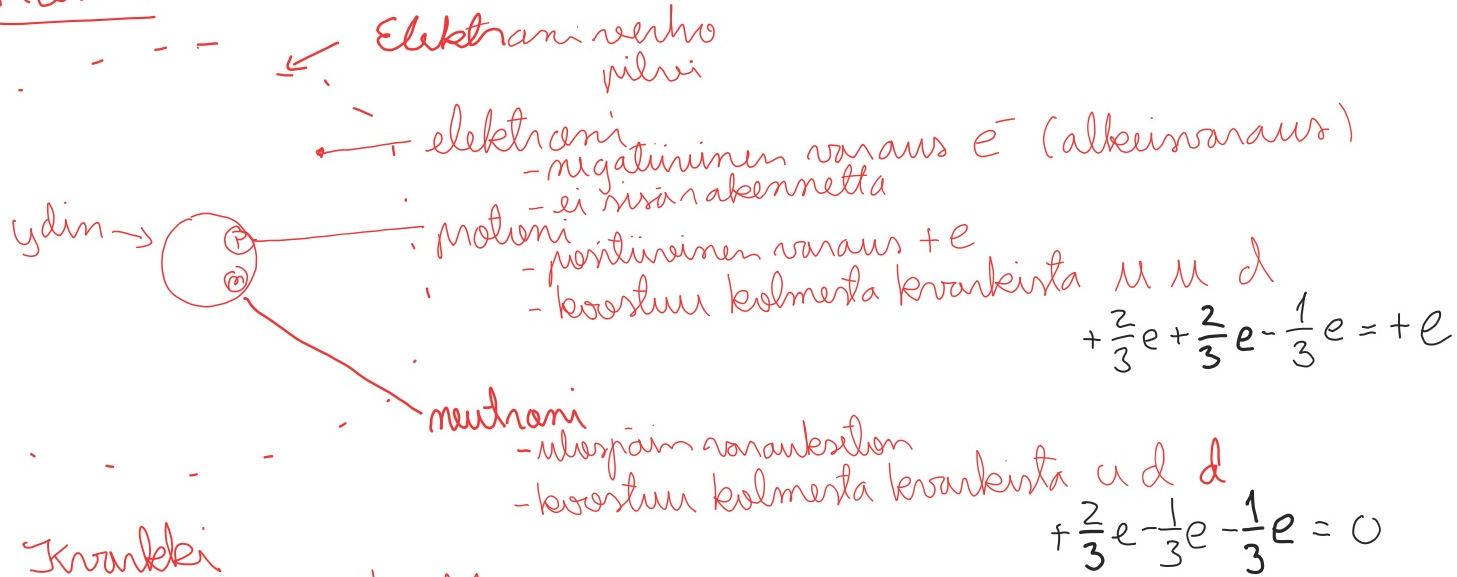 Elektroniverho
pilvi
elektroni
-negatiivinen varaus e⁻ (alkeisvaraus)
- ei sisärakennetta
ydin
P
n
protoni
- positiivinen varaus +e
- koostuu kolmesta kvarkista u u d
+2/3 e + 2/3 e - 1/3 e = +e
neutroni
-ulospäin varaukseton
-koostuu kolmesta kvarkista u d d
+2/3 e - 1/3 e - 1/3 e = 0
Kvarkki